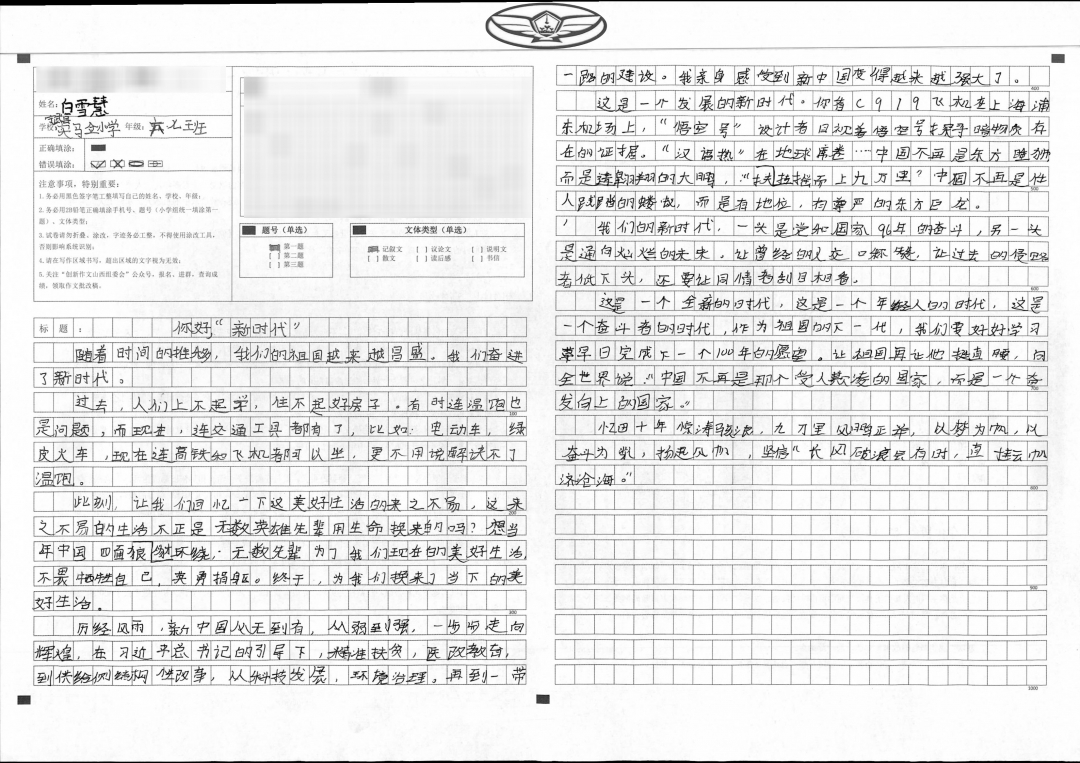 姓名:白雪慧
学校 马立小学 年级:六七班
正确填涂:
错误填涂:
注意事项,特别重要:
1.务必用黑色签字笔工整填写自己的姓名、学校、年级;
2.务必用2B铅笔正确填涂手机号、题号(小学组统一填涂第一
题)、文体类型;
3.试卷请勿折叠、涂改,字迹务必工整,不得使用涂改工具,
否则影响系统识别;
4.请在写作区域书写,超出区域的文字视为无效;
5.关注“创新作文山西组委会”公众号,报名、进群、查询成
绩,领取作文批改稿。
题号(单选)
第一题
[ ] 第二题
[ ] 第三题
文体类型(单选)
记叙文 [ ] 议论文 [ ] 说明文
[ ] 散文 [ ] 读后感 [ ] 书信
标题: 你好“新时代”
随着时间的推移,我们的祖国越来越昌盛。我们奋进
了新时代。
过去,人们上不起学,住不起好房子。有时连温饱也
是问题,而现在,连交通工具都有了,比如:电动车,绿
皮火车,现在连高铁和飞机者都可以坐,更不用说解决不了
温饱。
此刻,让我们回忆一下这美好生活的来之不易,这来
之不易的生活不正是无数英雄先辈用生命换来的吗?想当
年中国四面狼烟环绕,无数先辈为了我们现在的美好生活
不畏牺牲自己,英勇捐躯。终于,为我们换来了当下的美
好生活。
历经风雨,新中国从无到有,从弱到强,一步步走向
辉煌,在习近平总书记的引导下,精准扶贫,医改教育,
到供给侧结构性改革,从科技发展,环境治理。再到一带
一路的建设。我亲身感受到新中国变得越来越强大了。
这是一个发展的新时代。你看C919飞机在上海浦
东机场上,“悟空号”设计者日机着悟空号找寻暗物质存
在的证据。“汉语热”在地球席卷……中国不再是东方睡狮
而是翱翔的大鹏,“扶摇而上九万里?中国不再是任
人践踏的蝼蚁,而是有地位,有尊严的东方巨龙。
我们的新时代,一头是党和国家96年的奋斗,另一头
是通向灿烂的未来,让曾经的人交口称赞,让过去的侵略
者低下头,还要让同情者刮目相看。
这是一个全新的时代,这是一个年轻人的时代,这是
一个奋斗者的时代,作为祖国的下一代,我们要好好学习
早日完成下一个100年的愿望。让祖国再让他挺直腰,向
全世界说:“中国不再是那个受人欺凌的国家,而是一个奋
发向上的国家。”
忆回十年惊涛骇浪,九万里风鹏正举,以梦为帆,以
奋斗为桨,扬起风帆,坚信“长风破浪会有时,直挂云帆
济沧海。”
100
200
300
400
500
600
700
800
900
1000